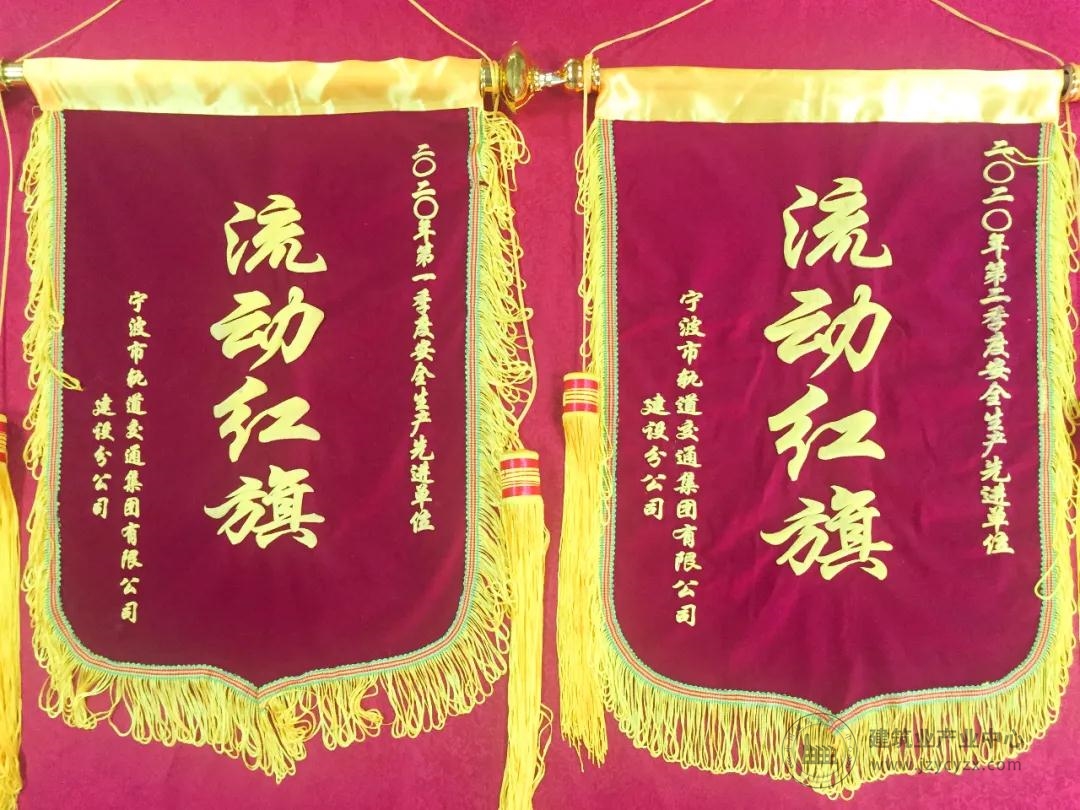 二〇二〇年第一季度安全生产先进单位
流动红旗
宁波市轨道交通集团有限公司
建设分公司
二〇二〇年第二季度安全生产先进单位
流动红旗
宁波市轨道交通集团有限公司
建设分公司
建筑业产业中心
www.jzycyzx.com